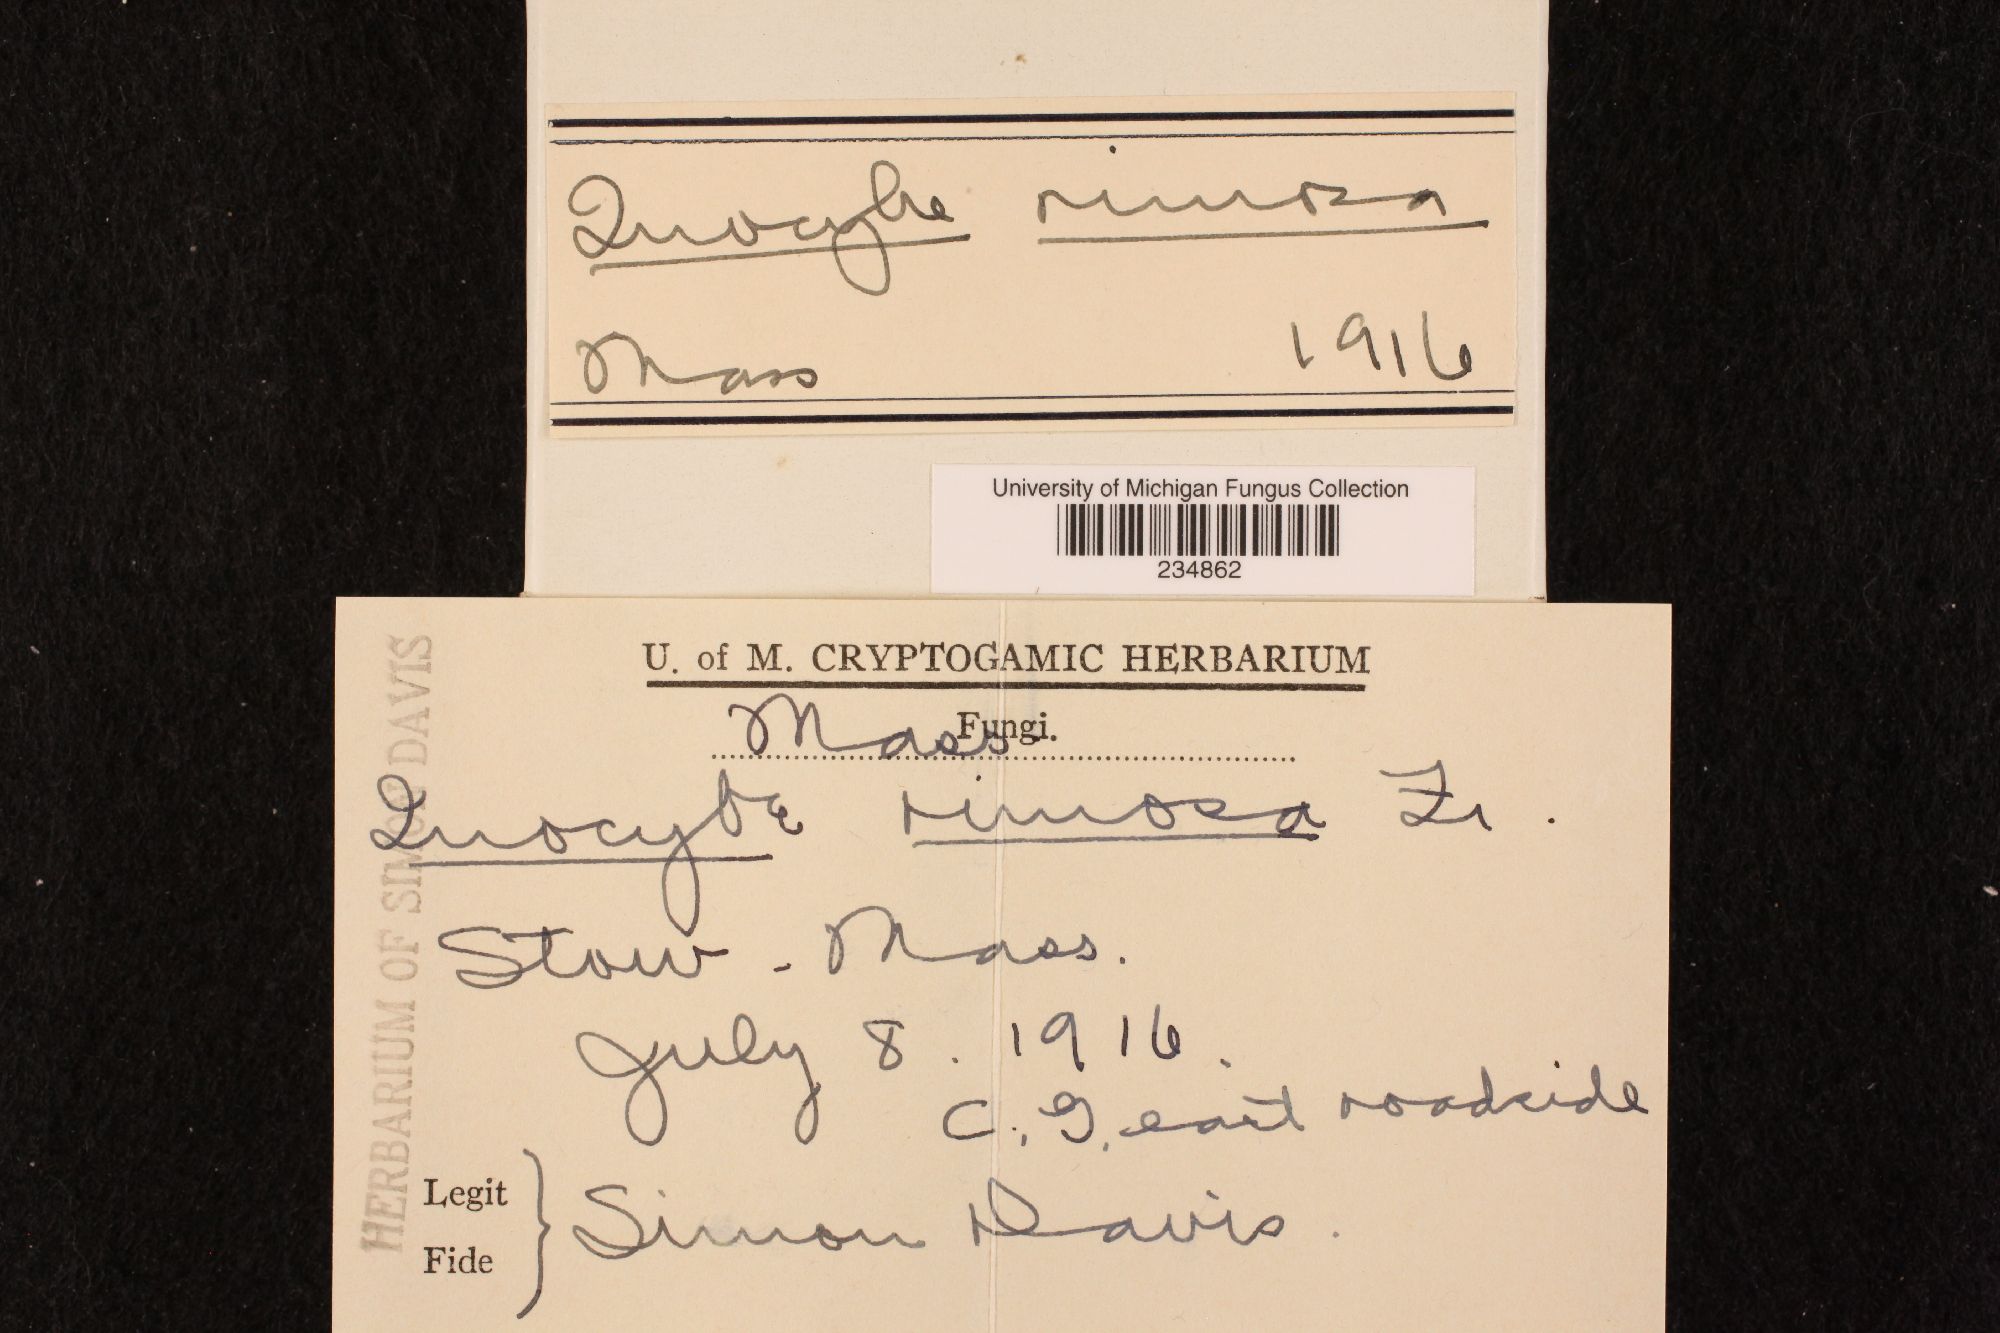 Inocybe rimosa
Mass 1916
University of Michigan Fungus Collection
234862
HERBARIUM OF SIMON DAVIS
U. of M. CRYPTOGAMIC HERBARIUM
Fungi.
Mass
Inocybe rimosa Fr.
Stow - Mass.
July 8. 1916.
C. G. east roadside
Legit
Fide
Simon Davis.